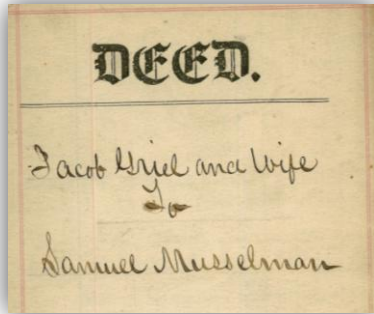 DEED.
Jacob Griel and Wife
To
Samuel Musselman